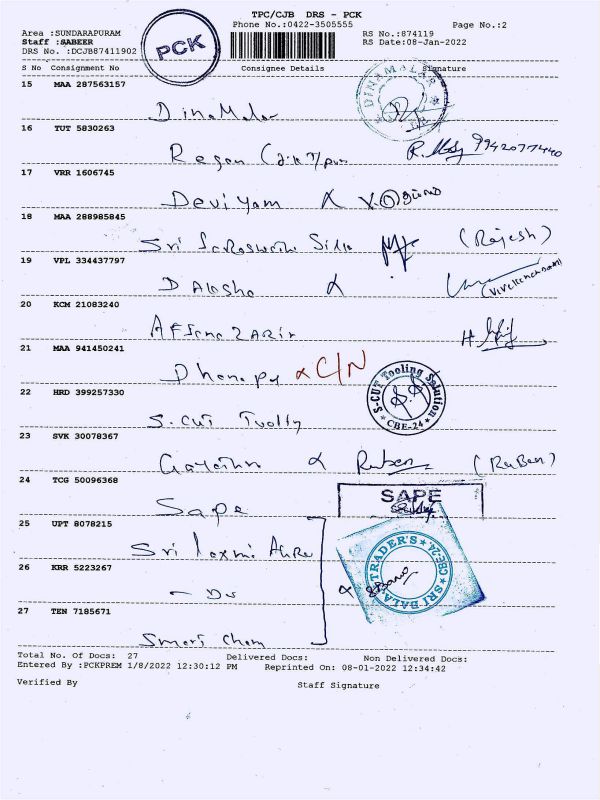 TPC/CJB DRS - PCK
Phone No.:0422-3505555
Page No.:2
Area :SUNDARAPURAM
Staff :SABEER
DRS No. :DCJB87411902
PCK
RS No.:874119
RS Date:08-Jan-2022
S No Consignment No Consignee Details Signature
15 MAA 287563157
DinaMalar
DINAMALAR
16 TUT 5830263
Regan
9942077440
17 VRR 1606745
Deviyam
18 MAA 288985845
Sri Saraswathi (Rajesh)
19 VPL 334437797
20 KCM 21083240
21 MAA 941450241
C/N
22 HRD 399257330
S.CUT
S-CUT Tooling Solution
CBE-24
23 SVK 30078367
Ruben (RuBen)
24 TCG 50096368
Sape
SAPE
25 UPT 8078215
Sri Laxmi
SRI BALA TRADER'S CBE-24
26 KRR 5223267
- Do
27 TEN 7185671
Smart Chem
Total No. Of Docs: 27 Delivered Docs: Non Delivered Docs:
Entered By :PCKPREM 1/8/2022 12:30:12 PM Reprinted On: 08-01-2022 12:34:42
Verified By Staff Signature